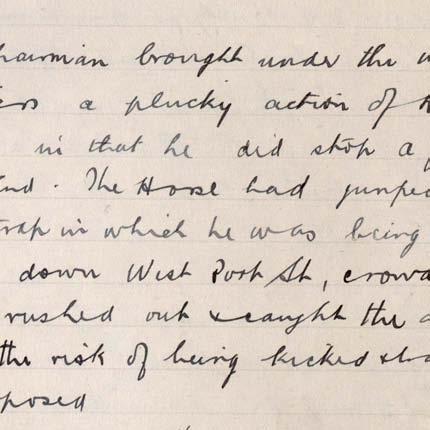 hairman brought under the n
ers a plucky action of
in that he did stop a
nd. The Horse had jumped
trap in which he was being
down West Port St, crowd
rushed out & caught the
the risk of being kicked &
posed